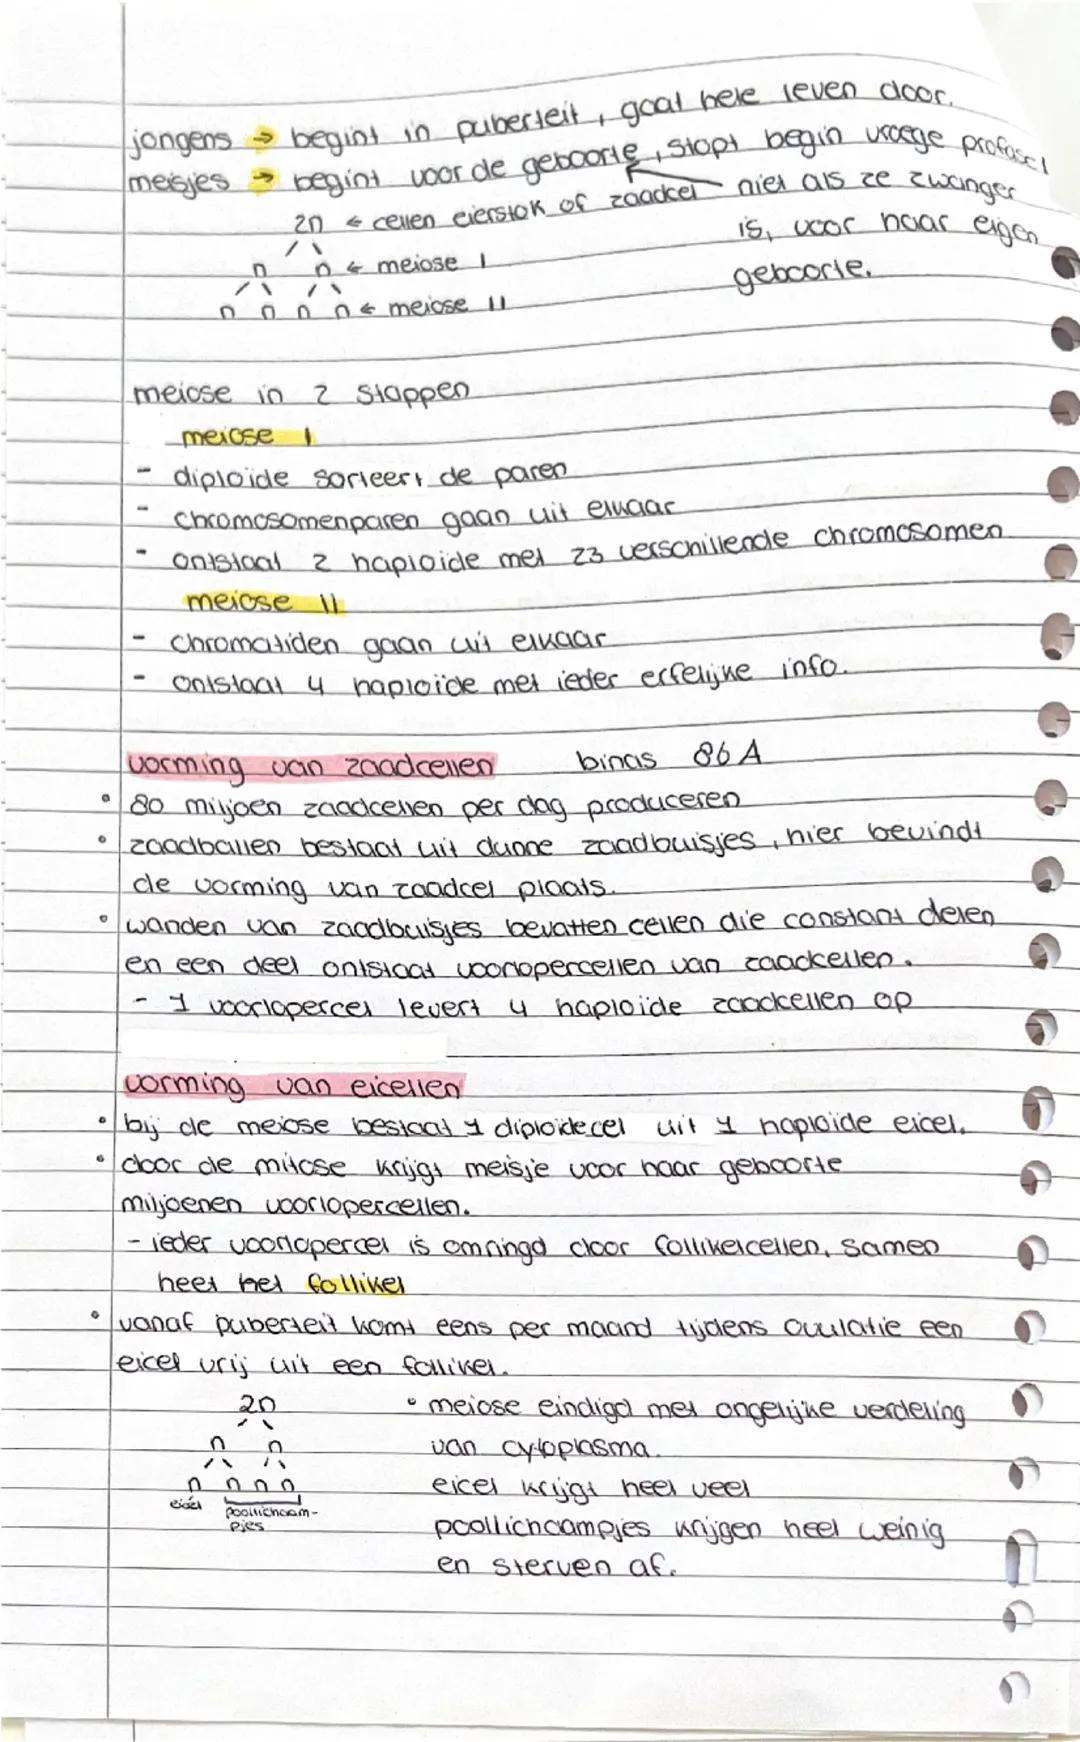 jongens → begint in puberteit, gaat hele leven door.
meisjes → begint voor de geboorte, stopt begin vroege profase I
2n ← cellen eierstok of zaadcel niet als ze zwanger
is, voor haar eigen
geboorte.
n n ← meiose I
n n n n ← meiose II
meiose in 2 stappen
meiose I
- diploïde sorteert de paren
- chromosomenparen gaan uit elkaar
- ontstaat 2 haploïde met 23 verschillende chromosomen
meiose II
- chromatiden gaan uit elkaar
- ontstaat 4 haploïde met ieder erfelijke info.
vorming van zaadcellen binas 86A
• 80 miljoen zaadcellen per dag produceren
• zaadballen bestaat uit dunne zaadbuisjes, hier bevindt
de vorming van zaadcel plaats.
• wanden van zaadbuisjes bevatten cellen die constant delen
en een deel ontstaat voorlopercellen van zaadcellen.
- 1 voorlopercel levert 4 haploïde zaadcellen op
vorming van eicellen
• bij de meiose bestaat 1 diploïdecel uit 1 haploïde eicel.
• door de mitose krijgt meisje voor haar geboorte
miljoenen voorlopercellen.
- ieder voorlopercel is omringd door follikelcellen, samen
heet het follikel
• vanaf puberteit komt eens per maand tijdens ovulatie een
eicel vrij uit een follikel.
2n
n n
n n n n
eicel poollichaam-
pjes
• meiose eindigd met ongelijke verdeling
van cytoplasma.
eicel krijgt heel veel
poollichaampjes krijgen heel weinig
en sterven af.